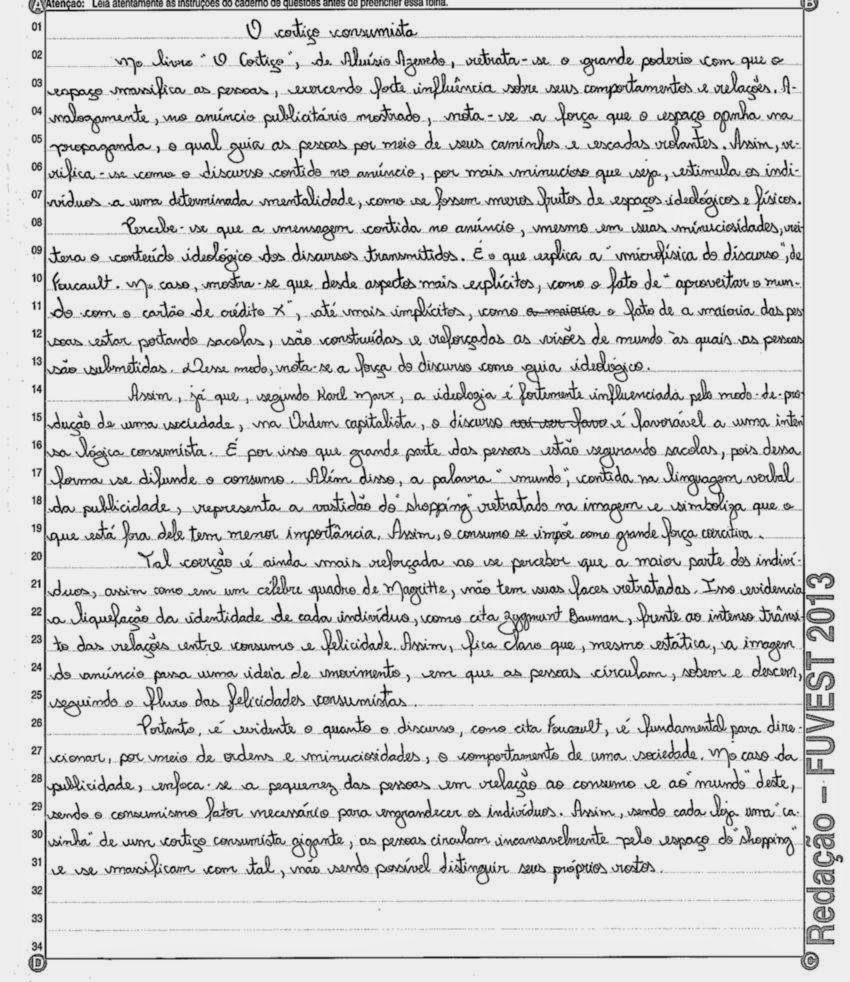 Atenção: Leia atentamente as instruções do caderno de questões antes de preencher essa folha.
A
B
01 O cortiço consumista
02 No livro "O Cortiço", de Aluísio Azevedo, retrata-se o grande poderio com que o
03 espaço massifica as pessoas, exercendo forte influência sobre seus comportamentos e relações. A-
04 nalogamente, no anúncio publicitário mostrado, nota-se a força que o espaço ganha na
05 propaganda, o qual guia as pessoas por meio de seus caminhos e escadas rolantes. Assim, ve-
06 rifica-se como o discurso contido no anúncio, por mais minucioso que seja, estimula os indi-
07 víduos a uma determinada mentalidade, como se fossem meros frutos de espaços ideológicos e físicos.
08 Percebe-se que a mensagem contida no anúncio, mesmo em suas minuciosidades, rei-
09 tera o conteúdo ideológico dos discursos transmitidos. É o que explica a "microfísica do discurso", de
10 Foucault. No caso, mostra-se que desde aspectos mais explícitos, como o fato de "aproveitar o mun-
11 do com o cartão de crédito X", até mais implícitos, como a maioria o fato de a maioria das pes
12 soas estar portando sacolas, são construídas e reforçadas as visões de mundo às quais as pessoas
13 são submetidas. Desse modo, nota-se a força do discurso como guia ideológico.
14 Assim, já que, segundo Karl Marx, a ideologia é fortemente influenciada pelo modo-de-pro-
15 dução de uma sociedade, na Ordem capitalista, o discurso vai ser favo é favorável a uma inten
16 sa lógica consumista. É por isso que grande parte das pessoas estão segurando sacolas, pois dessa
17 forma se difunde o consumo. Além disso, a palavra "mundo", contida na linguagem verbal
18 da publicidade, representa a vastidão do "shopping" retratado na imagem e simboliza que o
19 que está fora dele tem menor importância. Assim, o consumo se impõe como grande força coercitiva.
20 Tal coerção é ainda mais reforçada ao se perceber que a maior parte dos indiví-
21 duos, assim como em um célebre quadro de Magritte, não tem suas faces retratadas. Isso evidencia
22 a liquefação da identidade de cada indivíduo, como cita Zygmunt Bauman, frente ao intenso trânsi-
23 to das relações entre consumo e felicidade. Assim, fica claro que, mesmo estática, a imagem
24 do anúncio passa uma ideia de movimento, em que as pessoas circulam, sobem e descem,
25 seguindo o fluxo das felicidades consumistas.
26 Portanto, é evidente o quanto o discurso, como cita Foucault, é fundamental para dire-
27 cionar, por meio de ordens e minuciosidades, o comportamento de uma sociedade. No caso da
28 publicidade, enfoca-se a pequenez das pessoas em relação ao consumo e ao "mundo" deste,
29 sendo o consumismo fator necessário para engrandecer os indivíduos. Assim, sendo cada loja uma "ca-
30 sinha" de um cortiço consumista gigante, as pessoas circulam incansavelmente pelo espaço do "shopping"
31 e se massificam com tal, não sendo possível distinguir seus próprios rostos.
32
33
34
D
C
Redação – FUVEST 2013